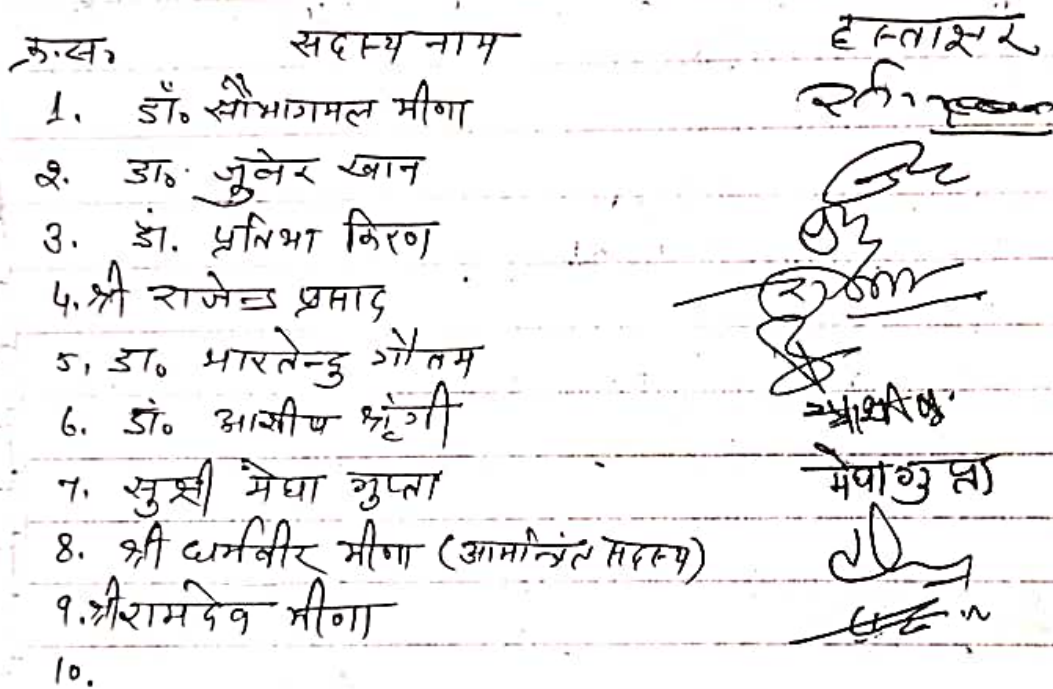 क्र.स. सदस्य नाम हस्ताक्षर
1. डॉ. सौभागमल मीणा
2. डा. जुबेर खान
3. डां. प्रतिभा किरण
4. श्री राजेन्द्र प्रसाद
5. डा. भारतेन्दु गौतम
6. डां. आसीष श्रृंगी
7. सुश्री मेघा गुप्ता मेघा गुप्ता
8. श्री धर्मवीर मीणा (आमन्त्रित सदस्य)
9. श्री रामदेव मीणा
10.